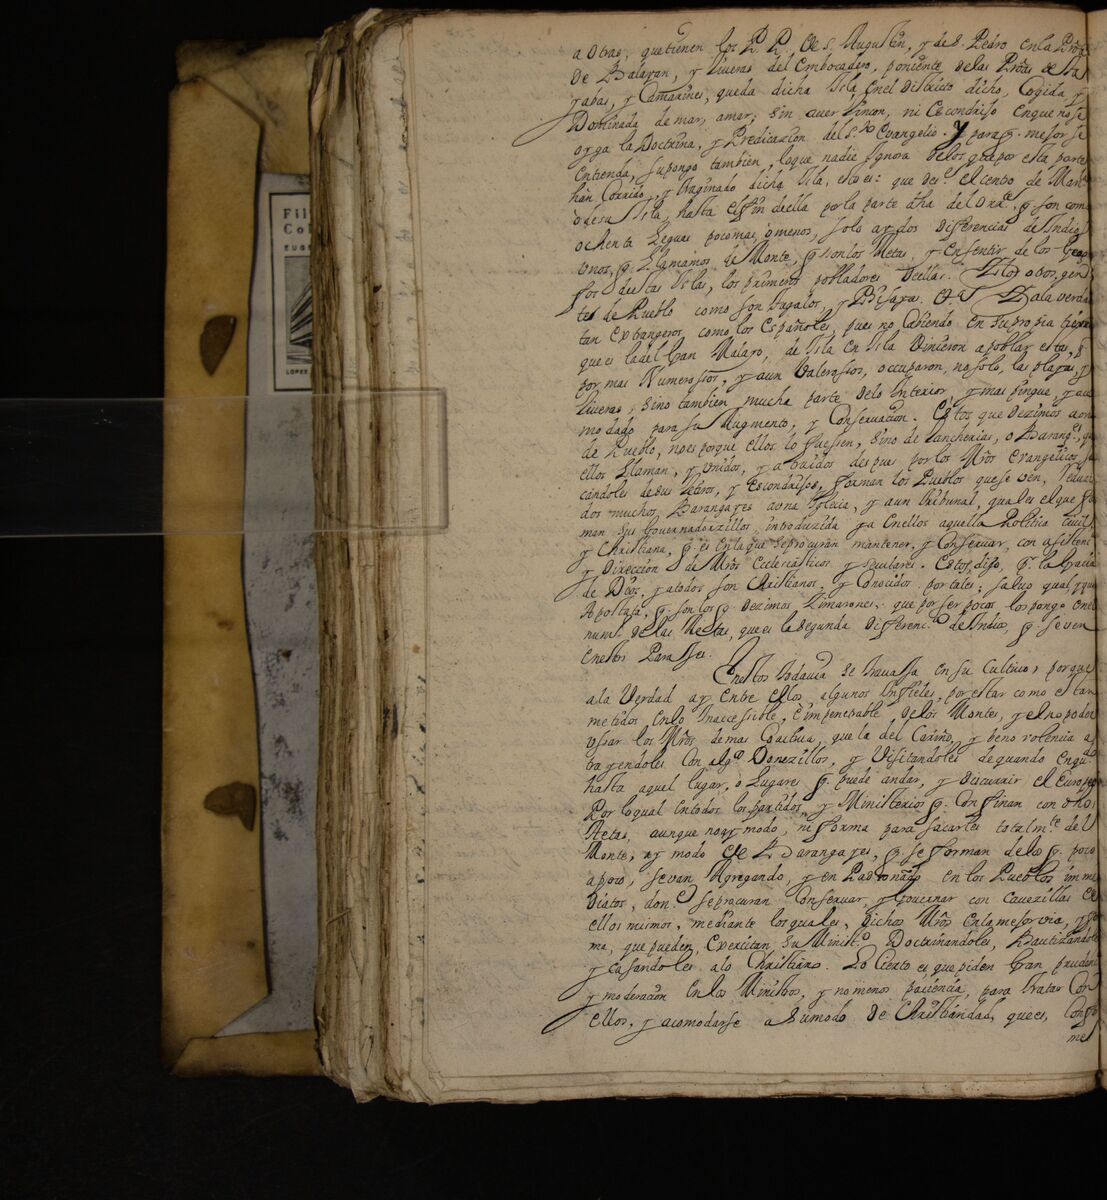 Fil
Col
EUGE
LOPEZ
a otras, que tienen los P.P. de S. Augustin, y de S. Pedro en la Pro
de Balayan, y riveras del Embocadero, poniente de las Proas de Ta
yabas, y Camarines, queda dicha Isla en el districto dicho, Cogida y
Dominada de mar, a mar; sin aver Rincon, ni Escondrijo en que no se
oyga la Doctrina, y Predicacion del Sto Evangelio. Y para q. mejor se
entienda, supongo tambien, lo que nadie ignora de los que por esta parte
han Corrido, y traginado dicha Isla, esto es: que desde el centro de
o de su Isla, hasta el fin de ella por la parte dha del Orte. q son como
ochenta Leguas poco mas, o menos, solo ay dos differencias de Indios
unos, q. Llamamos de Monte, q son los Aetas, y en sentir de los
fos de estas Islas, los primeros pobladores de ellas. Los otros gen
tes de Pueblo como son Tagalos, y Bisayas. A la verdad
tan extrangeros, como los Españoles, pues no Cabiendo en su propia tierra
que es la del Gran Malayo, de Isla en Isla vinieron a poblar estas, y
por mas Numerosos, y aun Valerosos, occuparon, no solo, las playas, y
riveras, sino tambien mucha parte de lo Interior, y mas pingue, y aco
modado para su Augmento, y Conservacion. Estos que dezimos aora
de Pueblo, no es porque ellos lo fuessen, sino de Rancherias, o Barangs. que
ellos Llaman, y Unidos, y atraidos despues por los Mros Evangelicos, sa
candoles de sus Retiros, y Escondrijos, forman los Pueblos que se ven, reduci
dos muchos Barangayes a una Iglecia, y aun tribunal, qual es el que for
man sus Governadorzillos, introduzida ya en ellos aquella Politica civil
y Christiana, q. es en la que se procuran mantener, y Conservar, con asistenc
y Direccion de Mros Ecclesiasticos y seculares. Estos, digo, pr. la Gracia
de Dios, ya todos son Christianos, y Conocidos por tales; salvo qualque
Apostata, q. son los q. Dezimos Zimarones, que por ser pocos los pongo en el
num. de las Aetas, que es la segunda Differenca. de Indios, q. se ven
en estos Parajes.
En estos todavia se travaja en su Cultivo; porque
a la Verdad ay entre ellos algunos Infieles, por estar como estan
metidos en lo Inaccessible, è impenetrable de los Montes, y el no poder
Ussar los Mros de mas que la del Cariño, y benevolencia a
trayendoles Con algs Donezillos, y Visitandoles de quando en qudo
hasta aquel lugar, ò Lugares q. puede andar, y discurrir el Europeo
Por lo qual en todos los partidos, y Ministerios q. Confinan con dhos
Aetas, aunque no ay modo, ni forma para sacarles totalmte del
Monte, ay modo de Barangayes, q. se forman de los q. poco
a poco, se van Agregando, y en Padronado en los Pueblos inme
diatos, donde se procuran Conservar, y Governar con Cavezillas de
ellos mismos, mediante los quales, dichos Mros en la mejor via, y for
ma, que pueden, Exercitan su Ministo. Doctrinandoles, Bautizandoles
y Casandoles a lo Christiano. Lo Cierto es que piden Gran prudenc
y moderacion en los Ministros, y no menos paciencia, para tratar Con
ellos, y acomodarse a su modo de Christiandad, que es, Confor
me